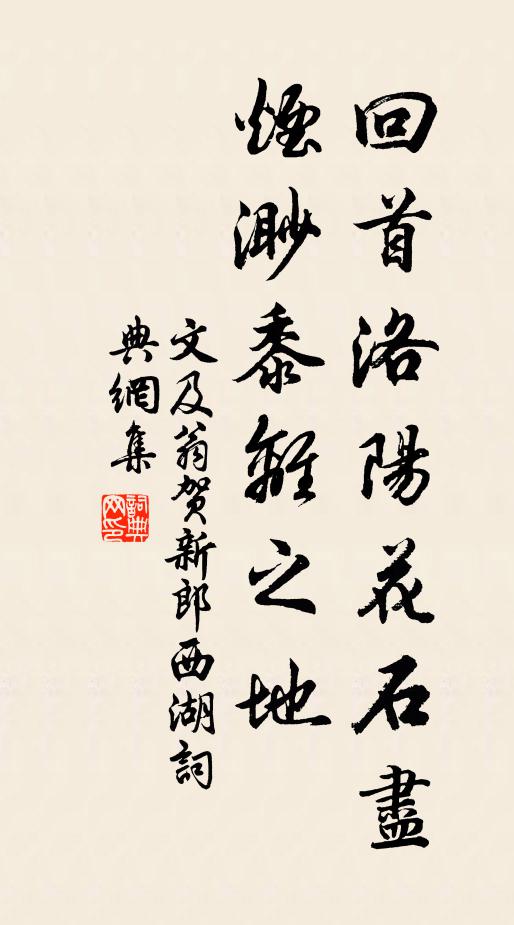 回首洛陽花石盡
煙渺黍離之地
文及翁賀新郎西湖詞
典網集
詞典網印